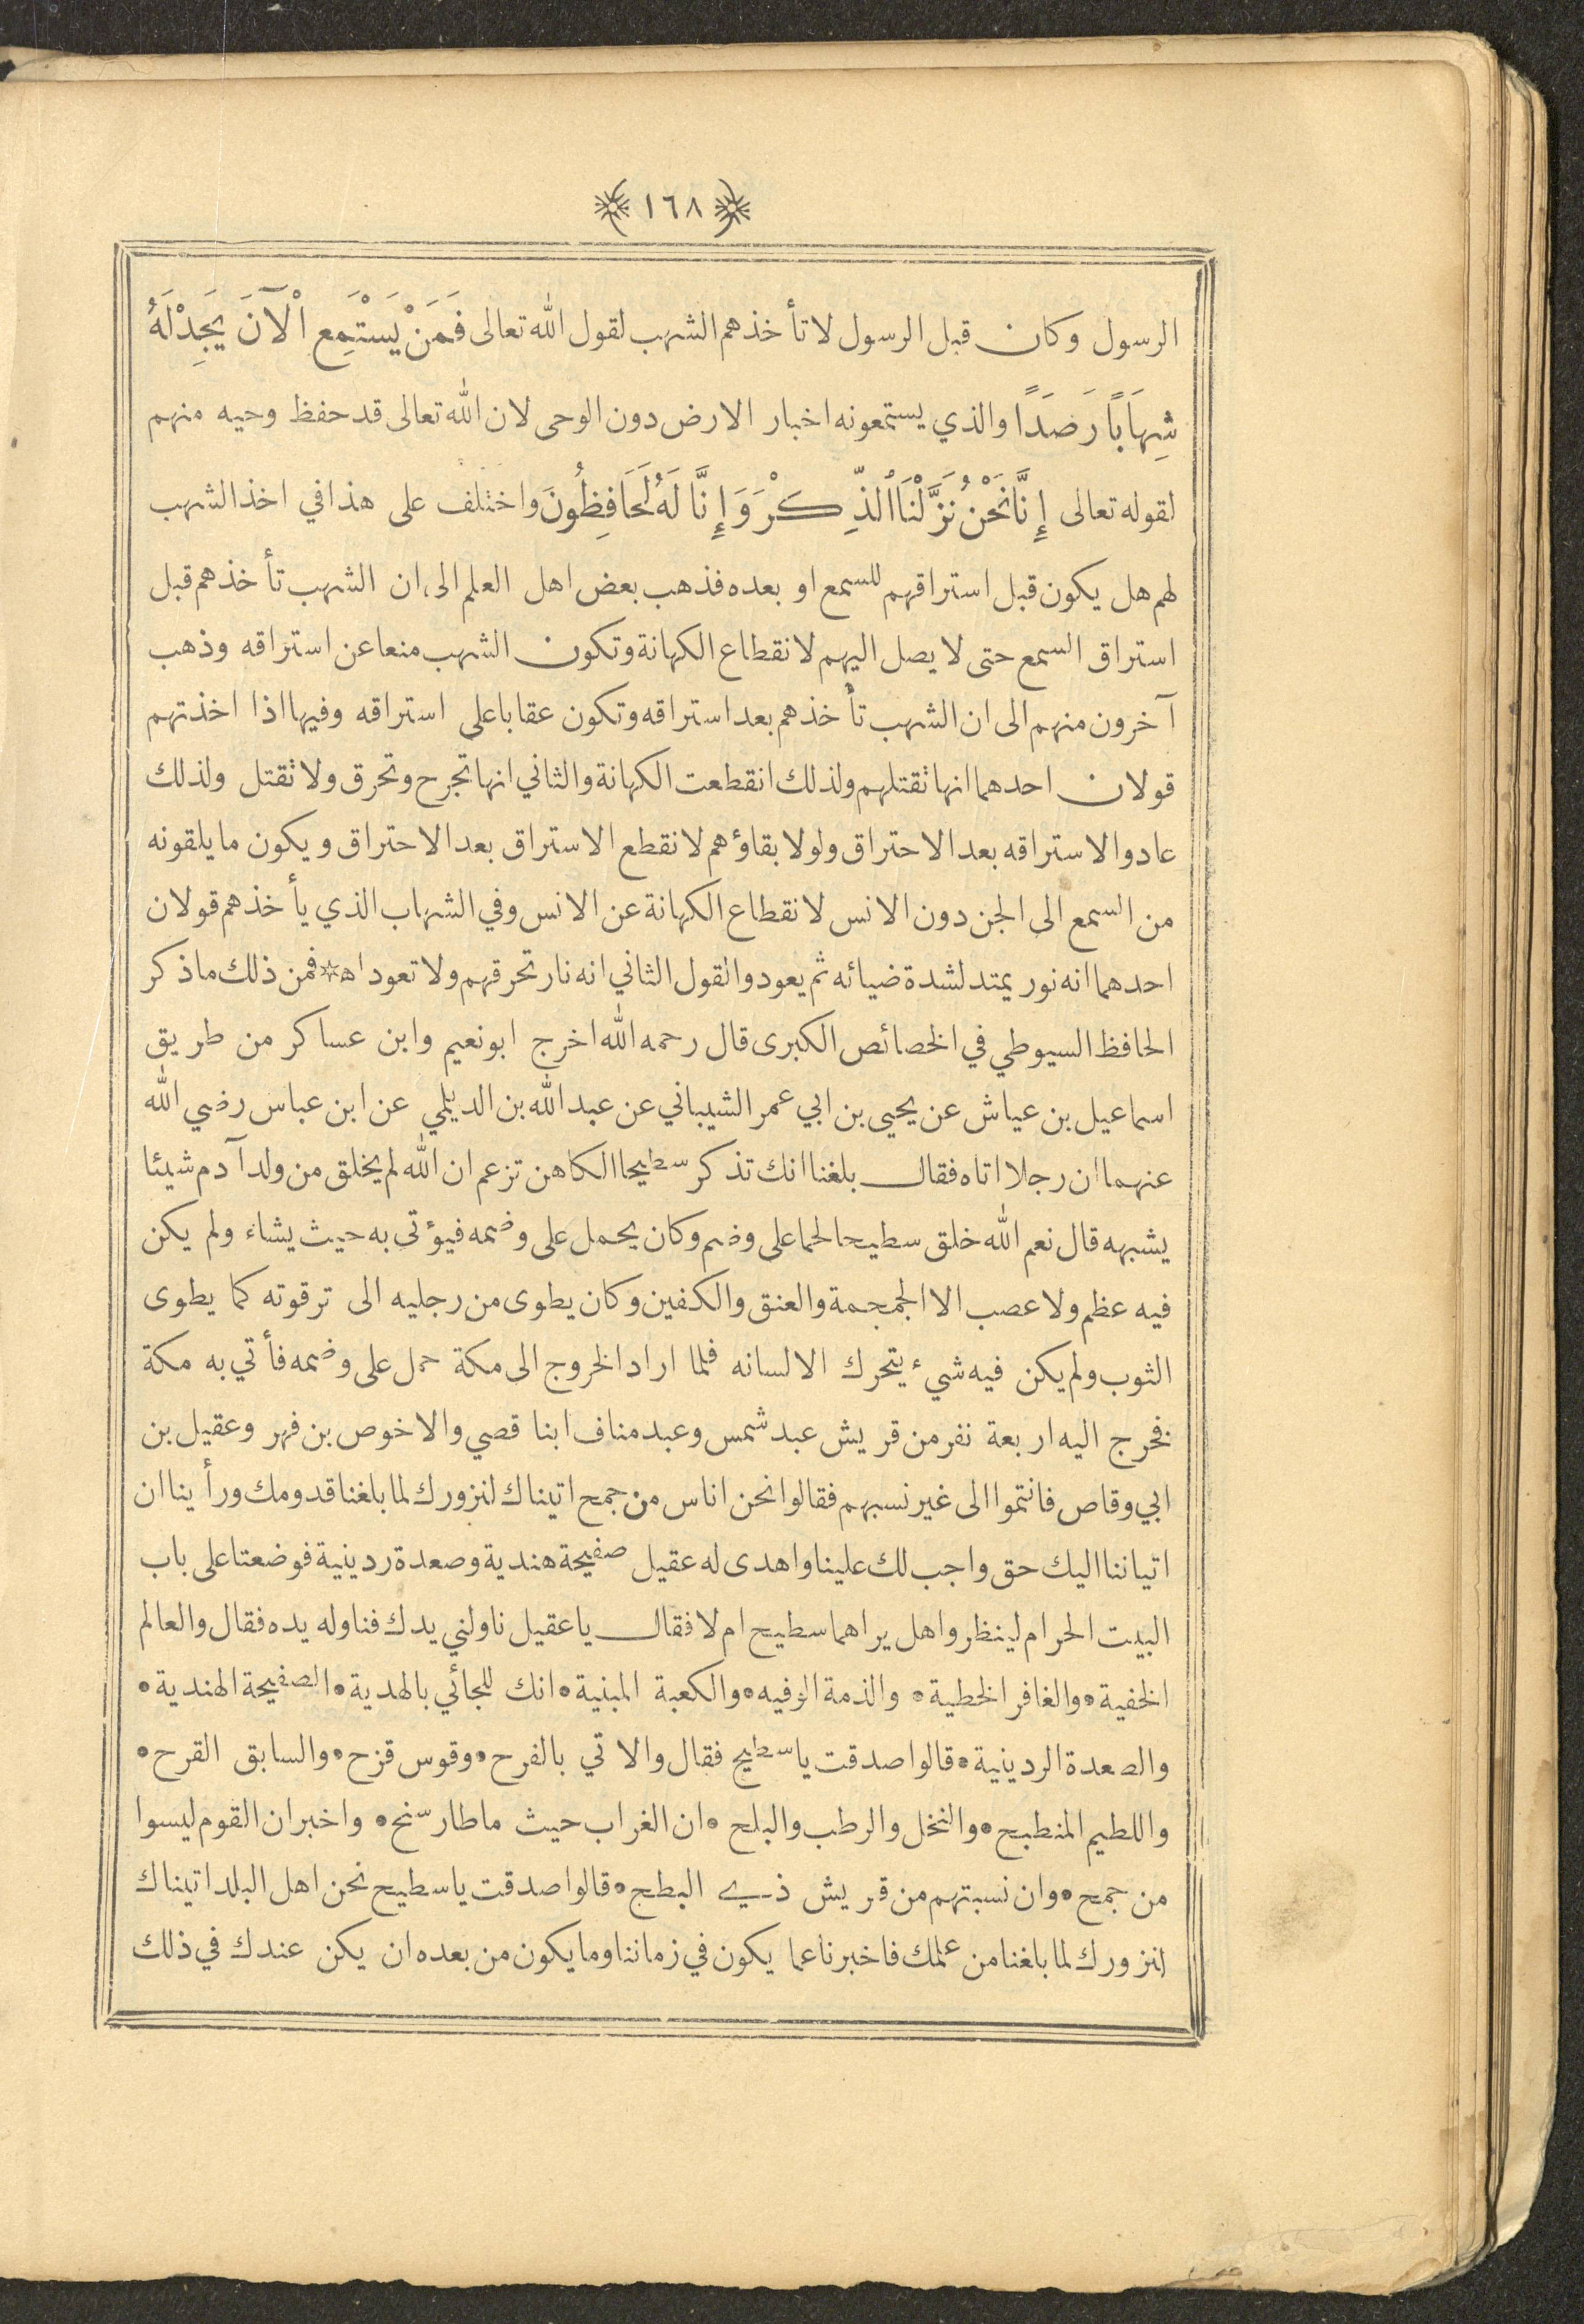 ١٦٨
الرسول وكان قبل الرسول لا تأخذهم الشهب لقول الله تعالى فَمَنْ يَسْتَمِعِ الْآنَ يَجِدْ لَهُ
شِهَابًا رَصَدًا والذي يستمعونه اخبار الارض دون الوحى لان الله تعالى قد حفظ وحيه منهم
لقوله تعالى إِنَّا نَحْنُ نَزَّلْنَا ٱلذِّكْرَ وَإِنَّا لَهُ لَحَافِظُونَ واختلف على هذا في اخذ الشهب
لهم هل يكون قبل استراقهم للسمع او بعده فذهب بعض اهل العلم الى ان الشهب تأخذهم قبل
استراق السمع حتى لا يصل اليهم لانقطاع الكهانة وتكون الشهب منعا عن استراقه وذهب
آخرون منهم الى ان الشهب تأخذهم بعد استراقه وتكون عقابا على استراقه وفيها اذا اخذتهم
قولان احدهما انها تقتلهم ولذلك انقطعت الكهانة والثاني انها تجرح وتحرق ولا تقتل ولذلك
عادوا لاستراقه بعد الاحتراق ولولا بقاؤهم لانقطع الاستراق بعد الاحتراق ويكون ما يلقونه
من السمع الى الجن دون الانس لانقطاع الكهانة عن الانس وفي الشهاب الذي يأخذهم قولان
احدهما انه نور يمتد لشدة ضيائه ثم يعود والقول الثاني انه نار تحرقهم ولا تعود اه * فمن ذلك ما ذكر
الحافظ السيوطي في الخصائص الكبرى قال رحمه الله اخرج ابو نعيم وابن عساكر من طريق
اسماعيل بن عياش عن يحيى بن ابي عمر الشيباني عن عبد الله بن الديلمي عن ابن عباس رضي الله
عنهما ان رجلا اتاه فقال بلغنا انك تذكر سطيحا الكاهن تزعم ان الله لم يخلق من ولد آدم شيئا
يشبهه قال نعم الله خلق سطيحا لحما على وضم وكان يحمل على وضمه فيؤتى به حيث يشاء ولم يكن
فيه عظم ولا عصب الا الجمجمة والعنق والكفين وكان يطوى من رجليه الى ترقوته كما يطوى
الثوب ولم يكن فيه شيء يتحرك الا لسانه فلما اراد الخروج الى مكة حمل على وضمه فأتي به مكة
فخرج اليه اربعة نفر من قريش عبد شمس وعبد مناف ابنا قصي والاخوص بن فهر وعقيل بن
ابي وقاص فانتموا الى غير نسبهم فقالوا نحن اناس من جمح اتيناك لنزورك لما بلغنا قدومك ورأينا ان
اتياننا اليك حق واجب لك علينا واهدى له عقيل صفيحة هندية وصعدة ردينية فوضعتا على باب
البيت الحرام لينظروا هل يراهما سطيح ام لا فقال يا عقيل ناولني يدك فناوله يده فقال والعالم
الخفية • والغافر الخطية • والذمة الوفيه • والكعبة المبنية • انك للجائي بالهدية • الصفيحة الهندية •
والصعدة الردينية • قالوا صدقت يا سطيح فقال والاتي بالفرح • وقوس قزح • والسابق القرح •
واللطيم المنطبح • والنخل والرطب والبلح • ان الغراب حيث ما طار سنح • واخبر ان القوم ليسوا
من جمح • وان نسبتهم من قريش ذي البطح • قالوا صدقت يا سطيح نحن اهل البلد اتيناك
لنزورك لما بلغنا من علمك فاخبرنا عما يكون في زماننا وما يكون من بعده ان يكن عندك في ذلك